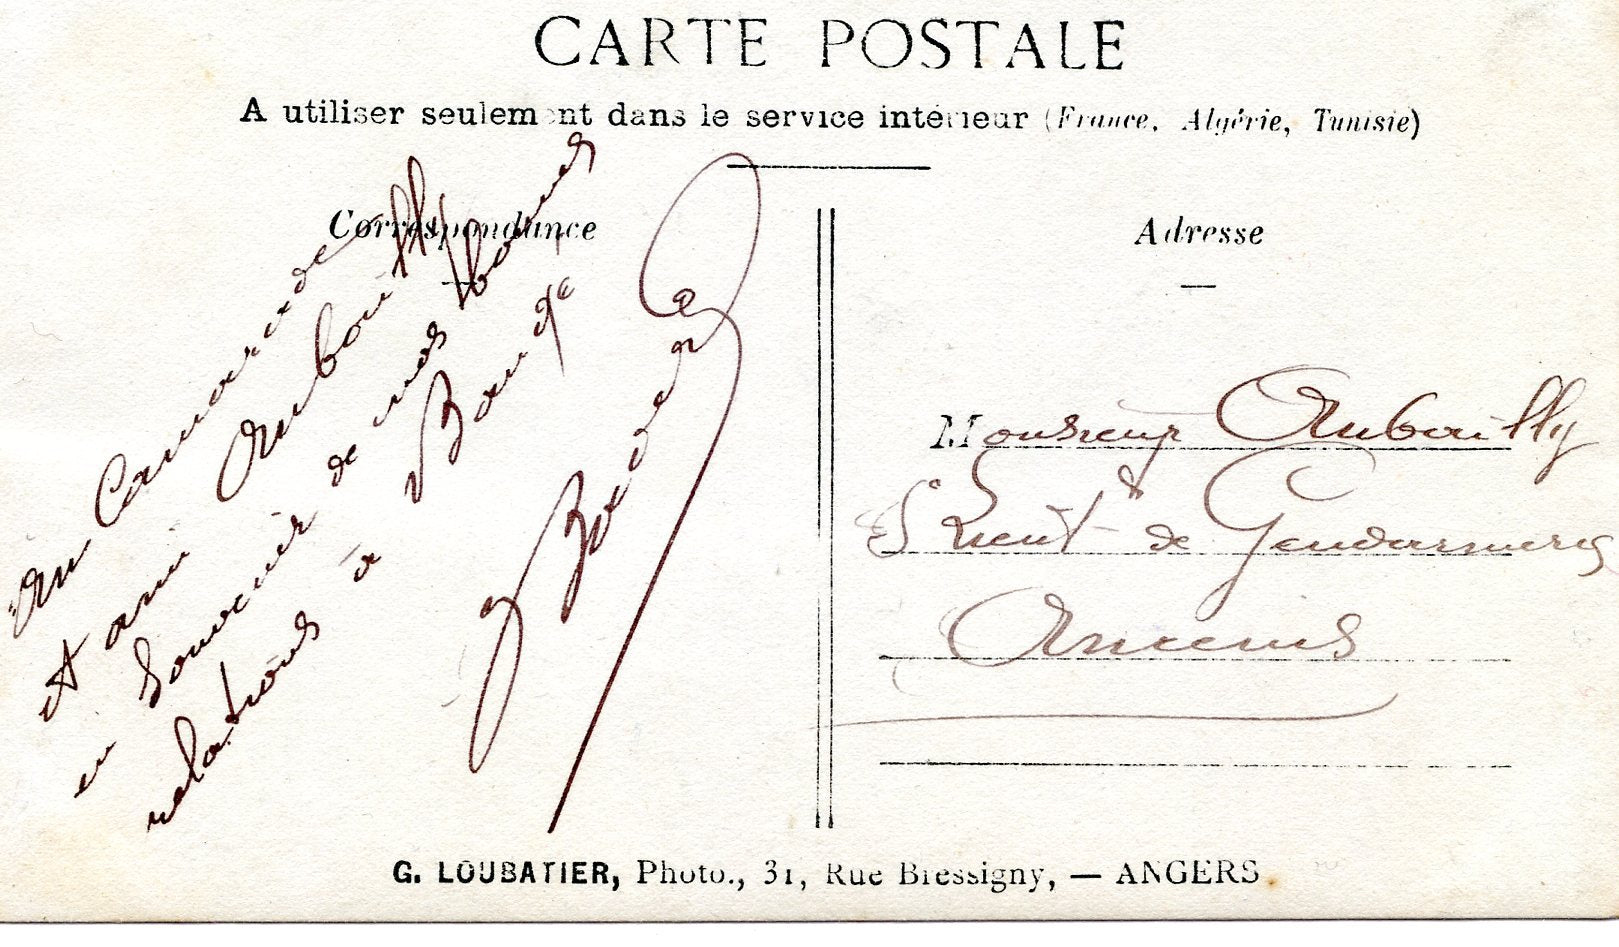 CARTE POSTALE
A utiliser seulement dans le service intérieur (France, Algérie, Tunisie)
Correspondance
Au Camarade
et ami Aubouilly
en souvenir de nos bonnes
relations à Baugé
Adresse
Monsieur Aubouilly
S Lieut de Gendarmerie
Ancenis
G. LOUBATIER, Photo., 31, Rue Bressigny, — ANGERS